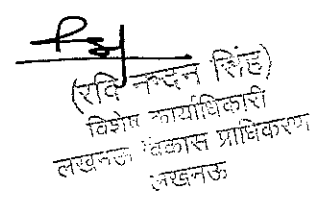 (रवि नन्दन सिंह)
विशेष कार्याधिकारी
लखनऊ विकास प्राधिकरण
लखनऊ